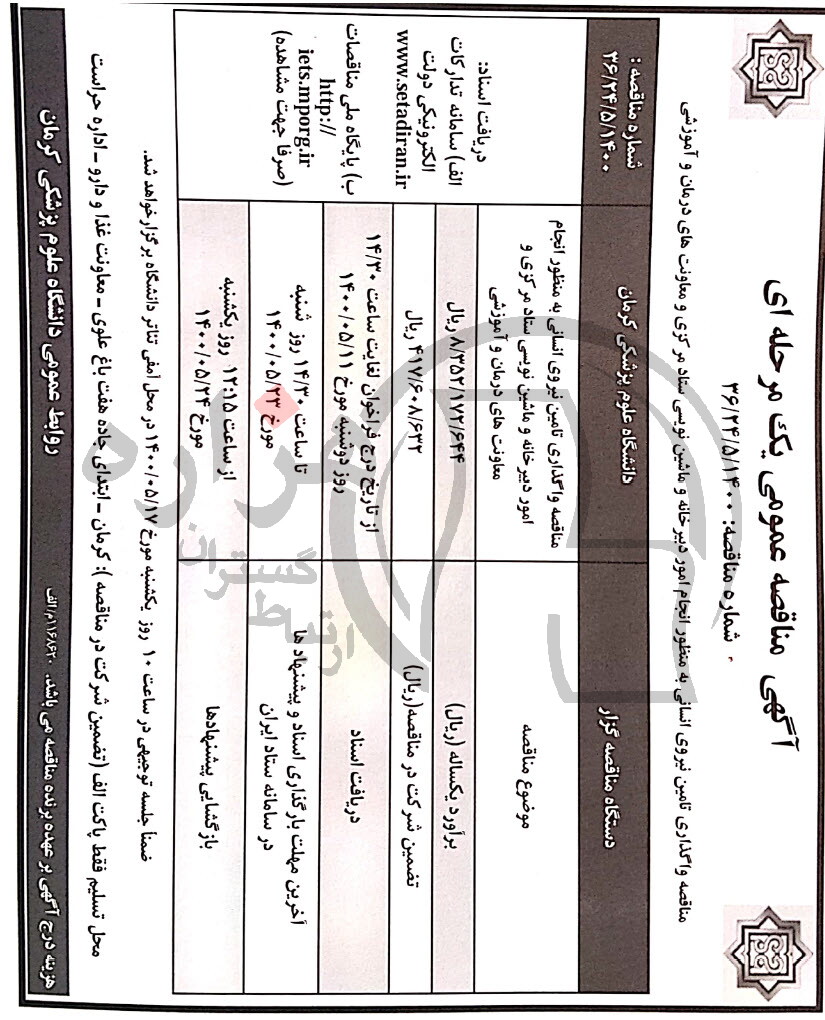 آگهی مناقصه عمومی یک مرحله ای
شماره مناقصه: ۳۶/۲۴/۵/۱۴۰۰
مناقصه واگذاری تامین نیروی انسانی به منظور انجام امور دبیرخانه و ماشین نویسی ستاد مرکزی و معاونت های درمان و آموزشی
دستگاه مناقصه گزار
دانشگاه علوم پزشکی کرمان
شماره مناقصه :
۳۶/۲۴/۵/۱۴۰۰
موضوع مناقصه
مناقصه واگذاری تامین نیروی انسانی به منظور انجام
امور دبیرخانه و ماشین نویسی ستاد مرکزی و
معاونت های درمان و آموزشی
برآورد یکساله (ریال)
۸/۳۵۲/۱۷۲/۶۴۴ ریال
تضمین شرکت در مناقصه(ریال)
۴۱۷/۶۰۸/۶۳۲ ریال
دریافت اسناد
از تاریخ درج فراخوان لغایت ساعت ۱۴/۳۰
روز دوشنبه مورخ ۱۴۰۰/۰۵/۱۱
آخرین مهلت بارگذاری اسناد و پیشنهاد ها
در سامانه ستاد ایران
تا ساعت ۱۴/۳۰ روز شنبه
مورخ ۱۴۰۰/۰۵/۲۳
بازگشایی پیشنهادها
از ساعت ۱۲:۱۵ روز یکشنبه
مورخ ۱۴۰۰/۰۵/۲۴
دریافت اسناد:
الف) سامانه تدارکات
الکترونیکی دولت
www.setadiran.ir
ب) پایگاه ملی مناقصات
http://
iets.mporg.ir
(صرفا جهت مشاهده)
ضمناً جلسه توجیهی در ساعت ۱۰ روز یکشنبه مورخ ۱۴۰۰/۰۵/۱۷ در محل آمفی تئاتر دانشگاه برگزارخواهد شد.
محل تسلیم فقط پاکت الف (تضمین شرکت در مناقصه ): کرمان ـ ابتدای جاده هفت باغ علوی ـ معاونت غذا و دارو ـ اداره حراست
هزینه درج آگهی بر عهده برنده مناقصه می باشد. ۱۱۶۸۶۲۰م/الف
روابط عمومی دانشگاه علوم پزشکی کرمان
ارتباط
گستران